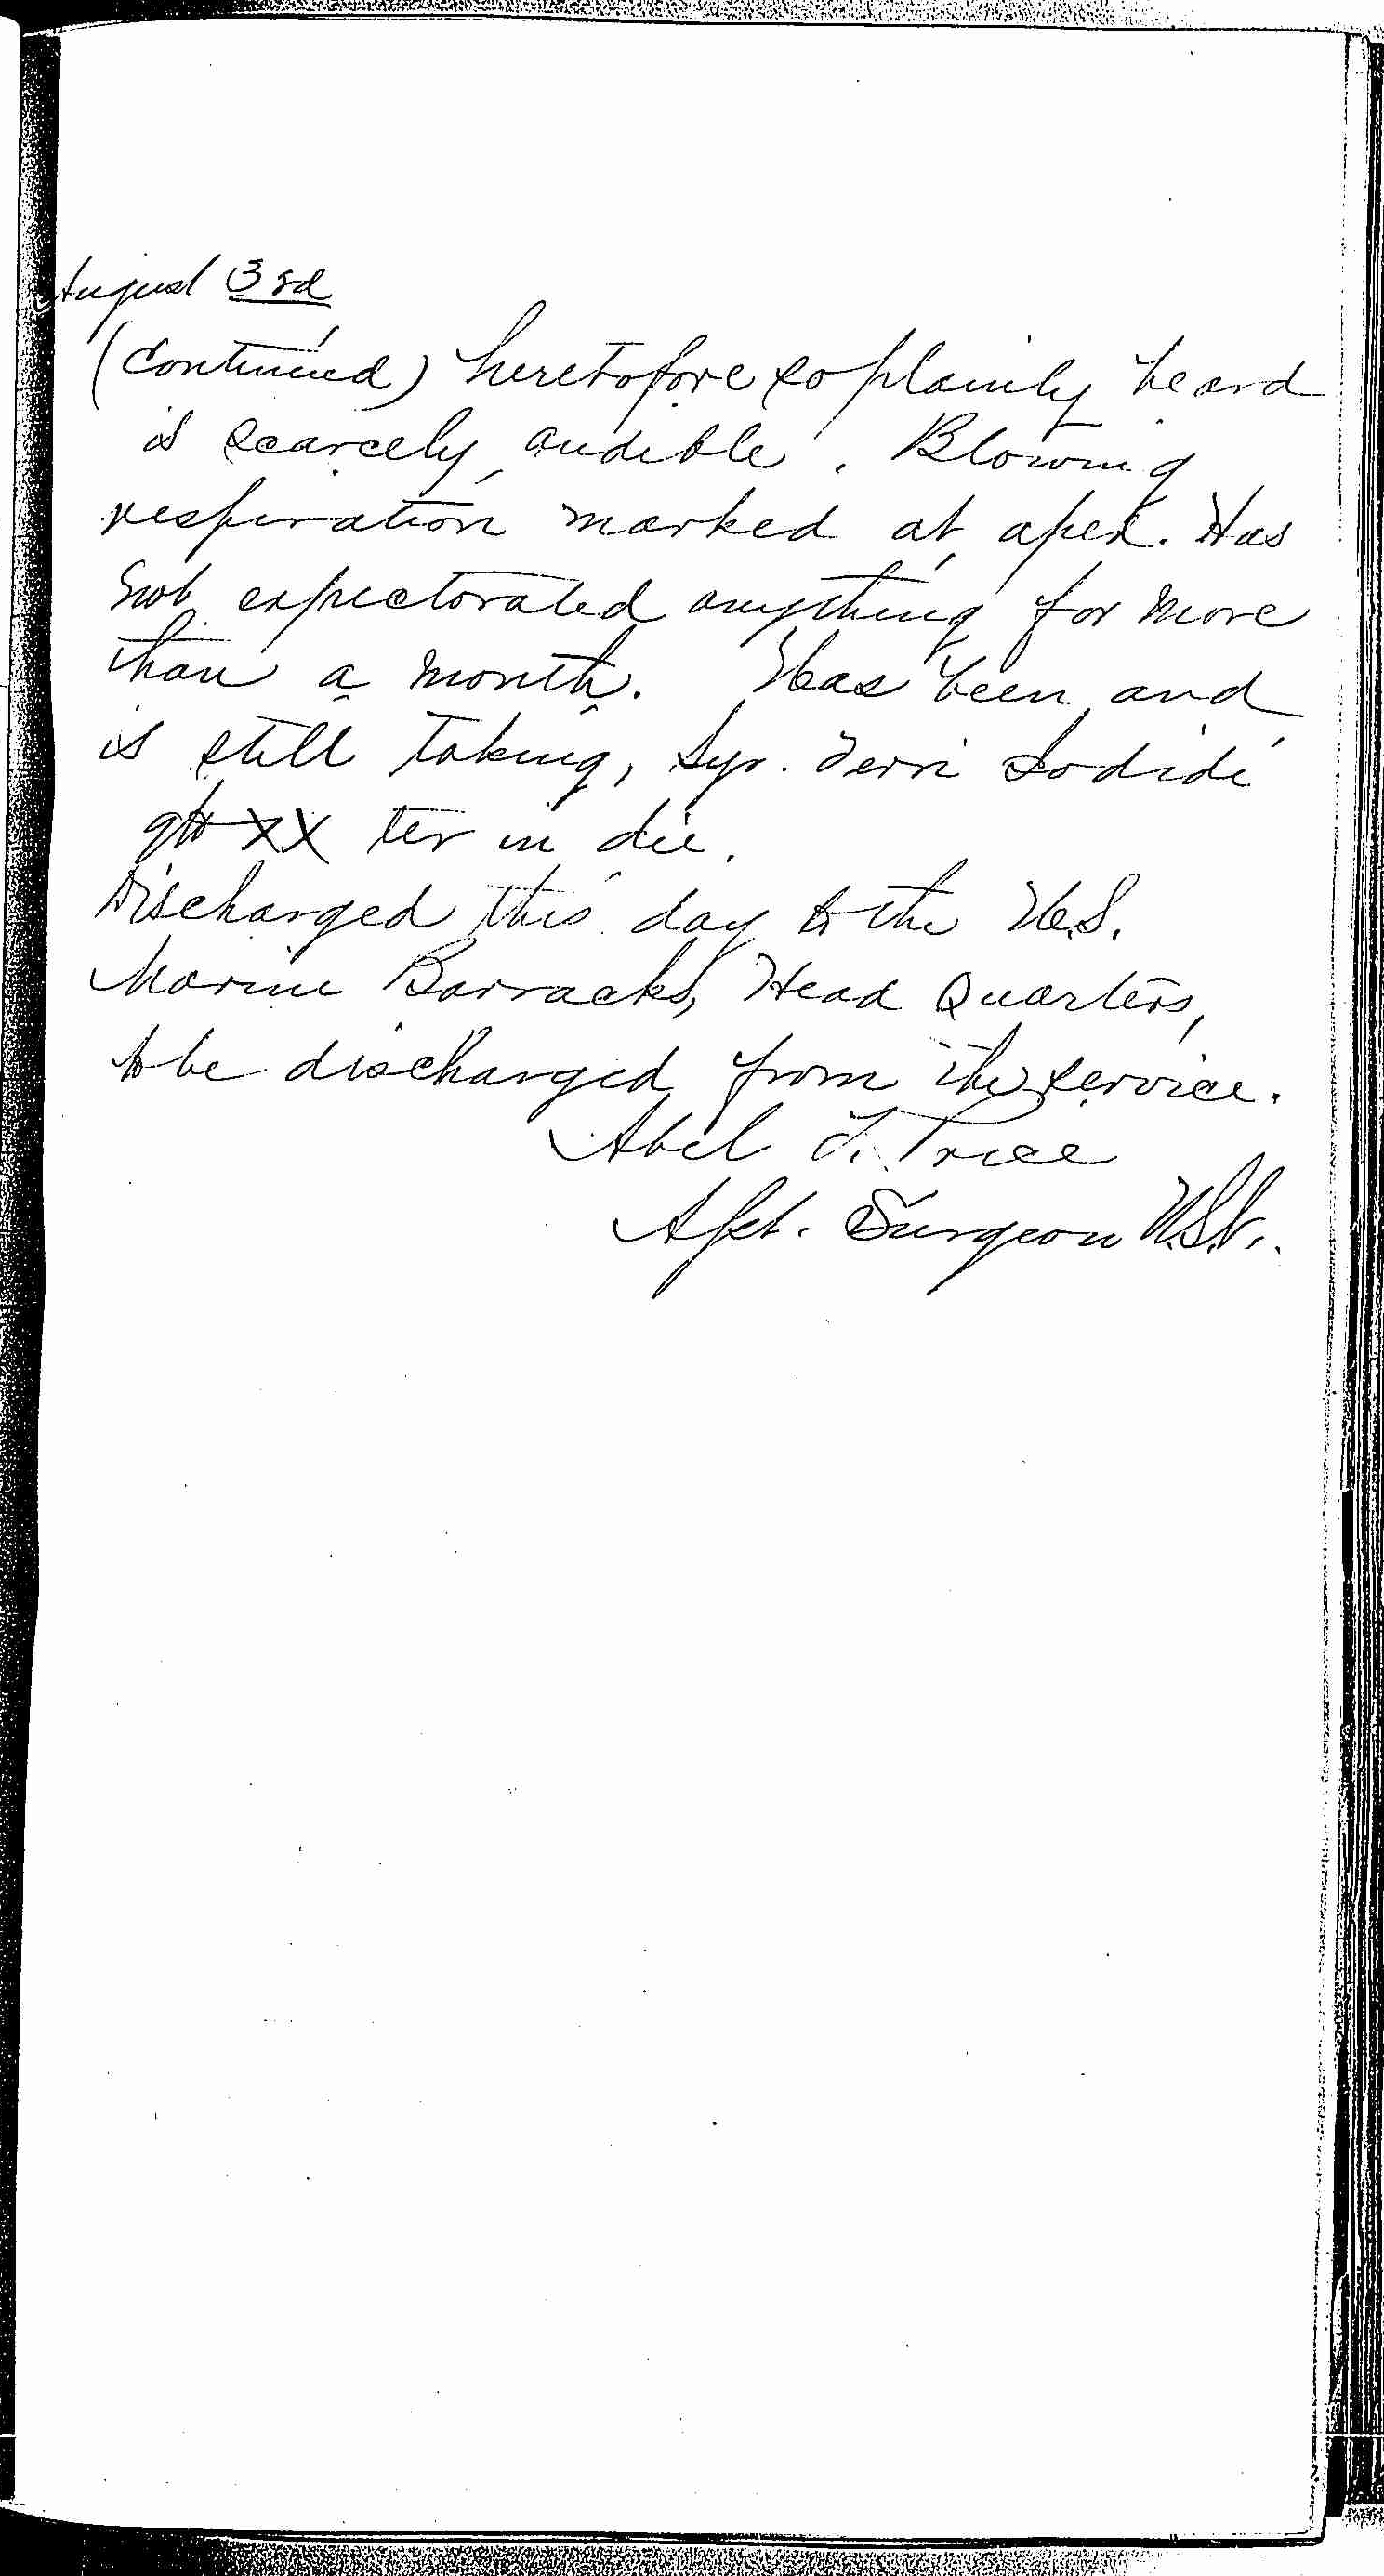 August 3rd
(Continued) heretofore so plainly heard
is scarcely audible. Blowing
respiration marked at apex. Has
not expectorated anything for more
than a month. Has been and
is still taking, Syr. Ferri Iodidi
gtt XX ter in die.
Discharged this day to the U.S.
Marine Barracks, Head Quarters,
to be discharged from the service.
Abel F. Price
Asst. Surgeon U.S.N.